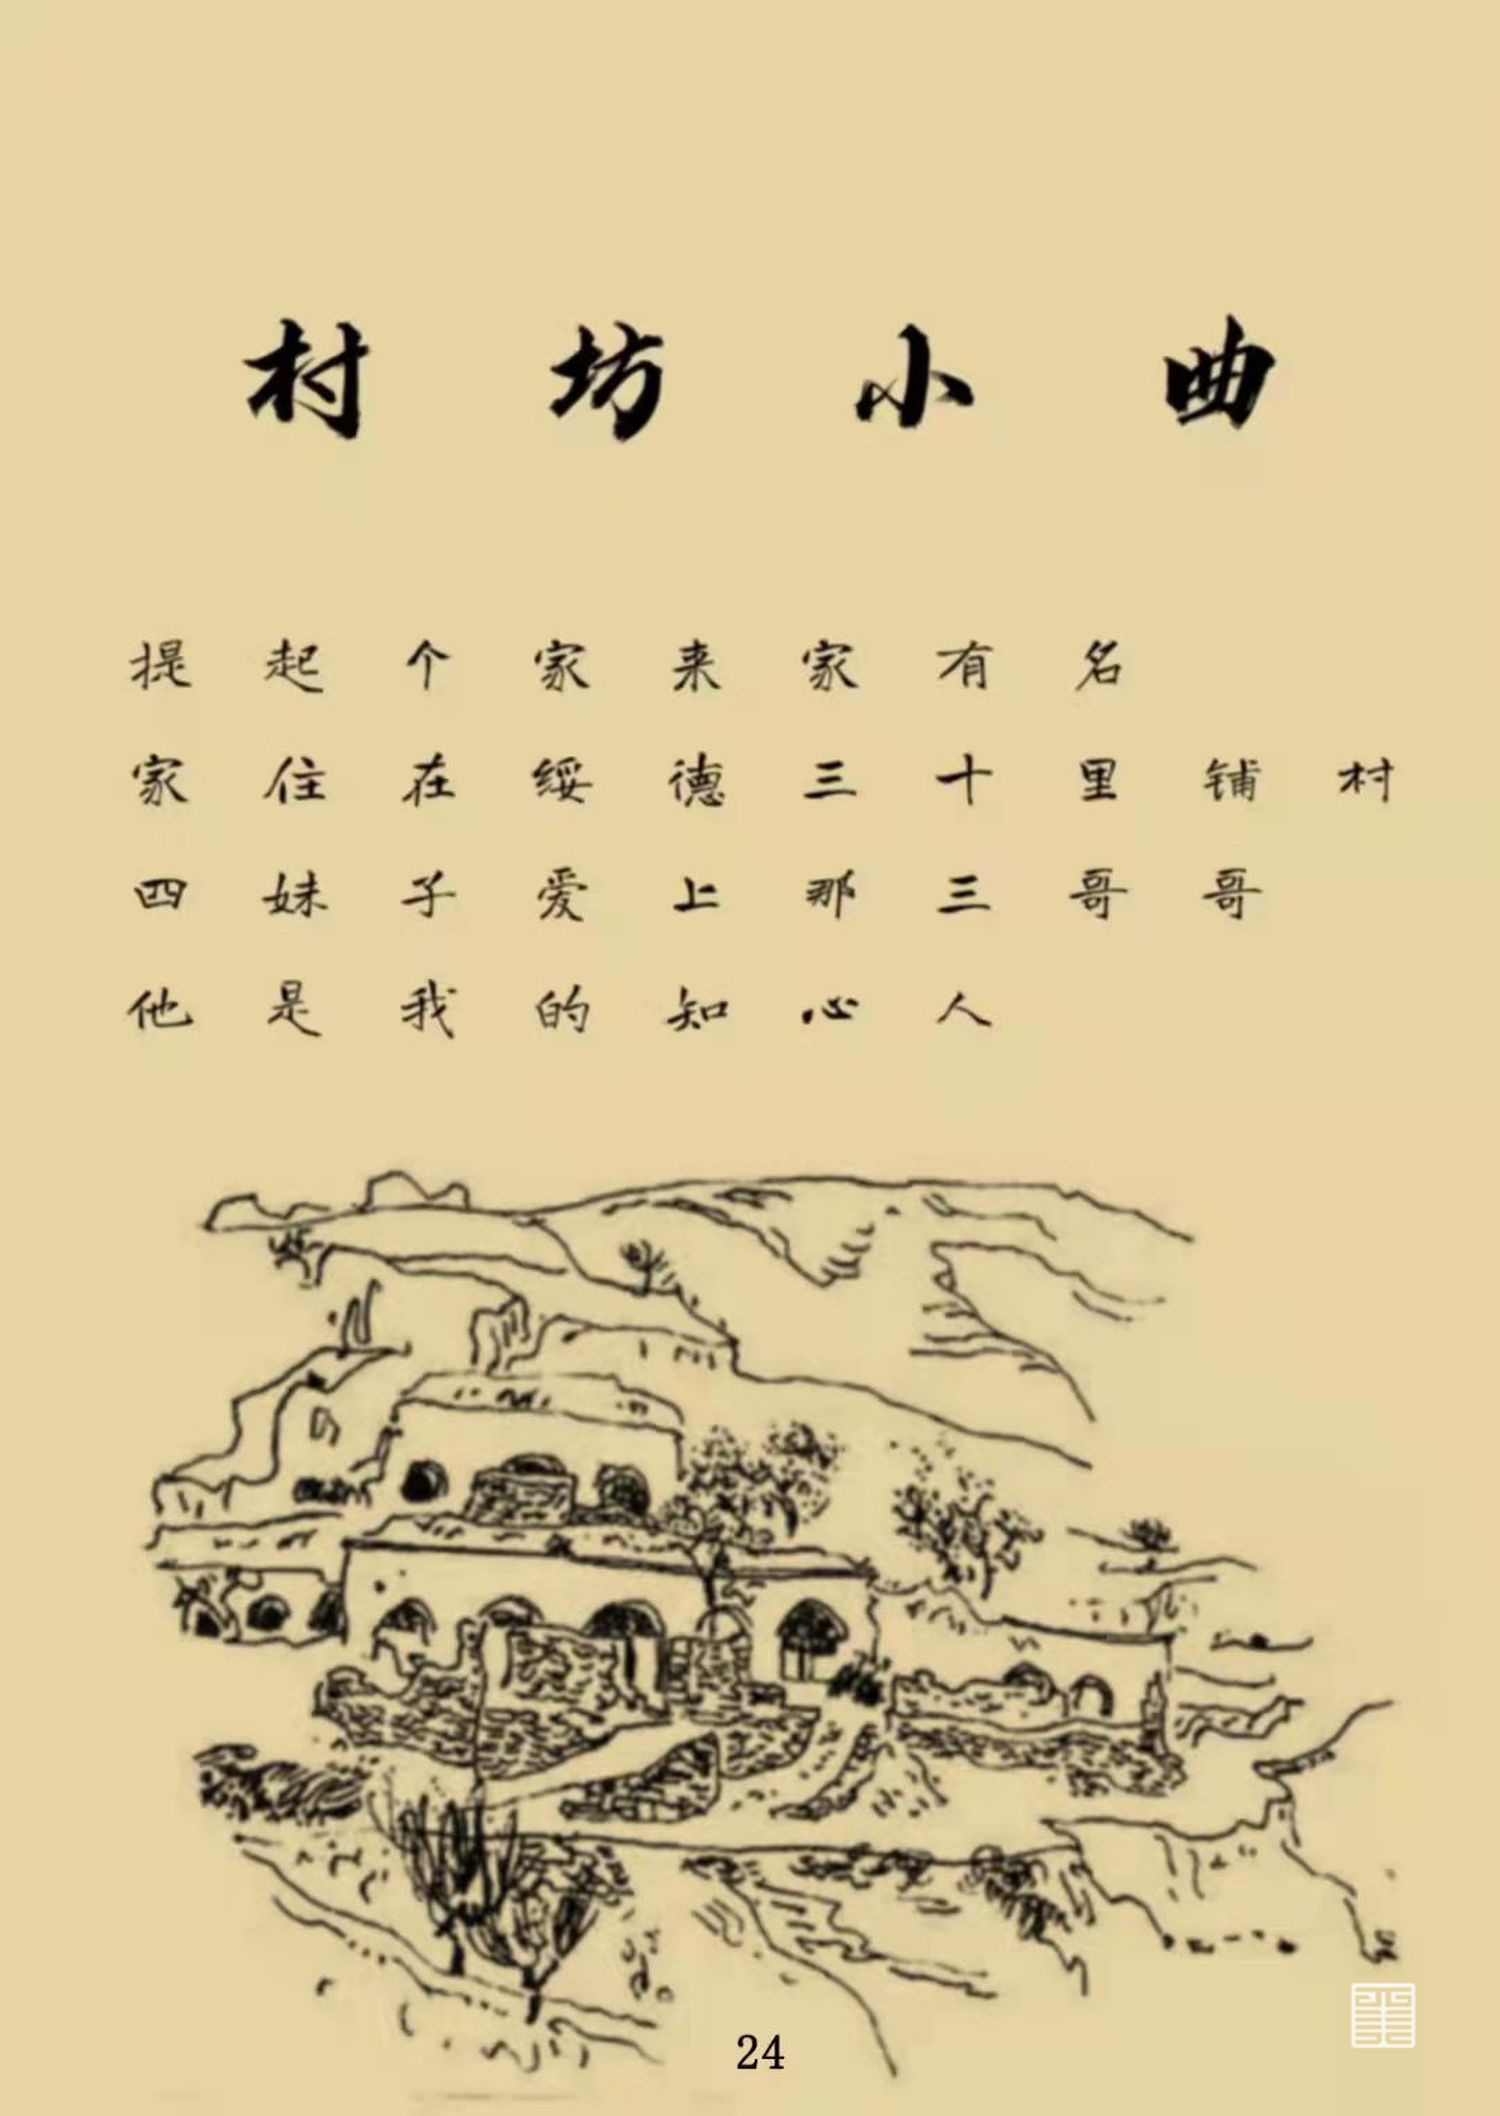 村坊小曲
提起个家来家有名
家住在绥德三十里铺村
四妹子爱上那三哥哥
他是我的知心人
24